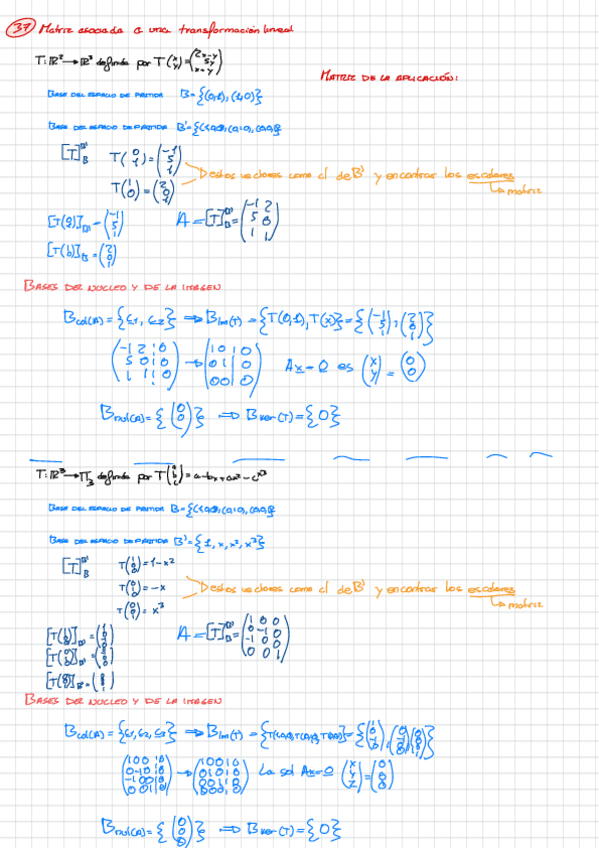 37 Matriz asociada a una transformación lineal
T: ℝ² → ℝ³ definida por T(x y) = (2x-y 5y x+y)
MATRIZ DE LA APLICACIÓN:
BASE DEL ESPACIO DE PARTIDA B = {(0,1), (1,0)}
BASE DEL ESPACIO DE PARTIDA B' =
[T]_B^B' T(0 1) = (-1 5 1)
T(1 0) = (2 0 1)
D estos vectores como cl de B' y encontrar los escalares
↳ matriz
[T(0 1)]_B' = (-1 5 1) A = [T]_B^B' = (-1 2 5 0 1 1)
[T(1 0)]_B' = (2 0 1)
BASES DEL NUCLEO Y DE LA IMAGEN
B_col(A) = {c1, c2} ⇒ B_Im(T) = {T(0,1), T(x)} = {(-1 5 1), (2 0 1)}
(-1 2 | 0 5 0 | 0 1 1 | 0) → (1 0 | 0 0 1 | 0 0 0 | 0) Ax = 0 es (x y) = (0 0)
B_nul(A) = {(0 0)} ⇒ B_Ker(T) = {0}
T: ℝ³ → Π₃ definida por T(a b c) = a-bx+ax²-cx³
BASE DEL ESPACIO DE PARTIDA B =
BASE DEL ESPACIO DE PARTIDA B' = {1, x, x², x³}
[T]_B^B' T(1 0 0) = 1-x²
T(0 1 0) = -x
T(0 0 1) = x³
D estos vectores como cl de B' y encontrar los escalares
↳ matriz
A = [T]_B^B' = (1 0 0 0 -1 0 -1 0 0 0 0 1)
BASES DEL NUCLEO Y DE LA IMAGEN
B_col(A) = {c1, c2, c3} ⇒ B_Im(T) =
(1 0 0 | 0 0 -1 0 | 0 -1 0 0 | 0 0 0 1 | 0) → (1 0 0 | 0 0 1 0 | 0 0 0 1 | 0 0 0 0 | 0) La sol Ax = 0 (x y z) = (0 0 0)
B_nul(A) = {(0 0 0)} ⇒ B_Ker(T) = {0}